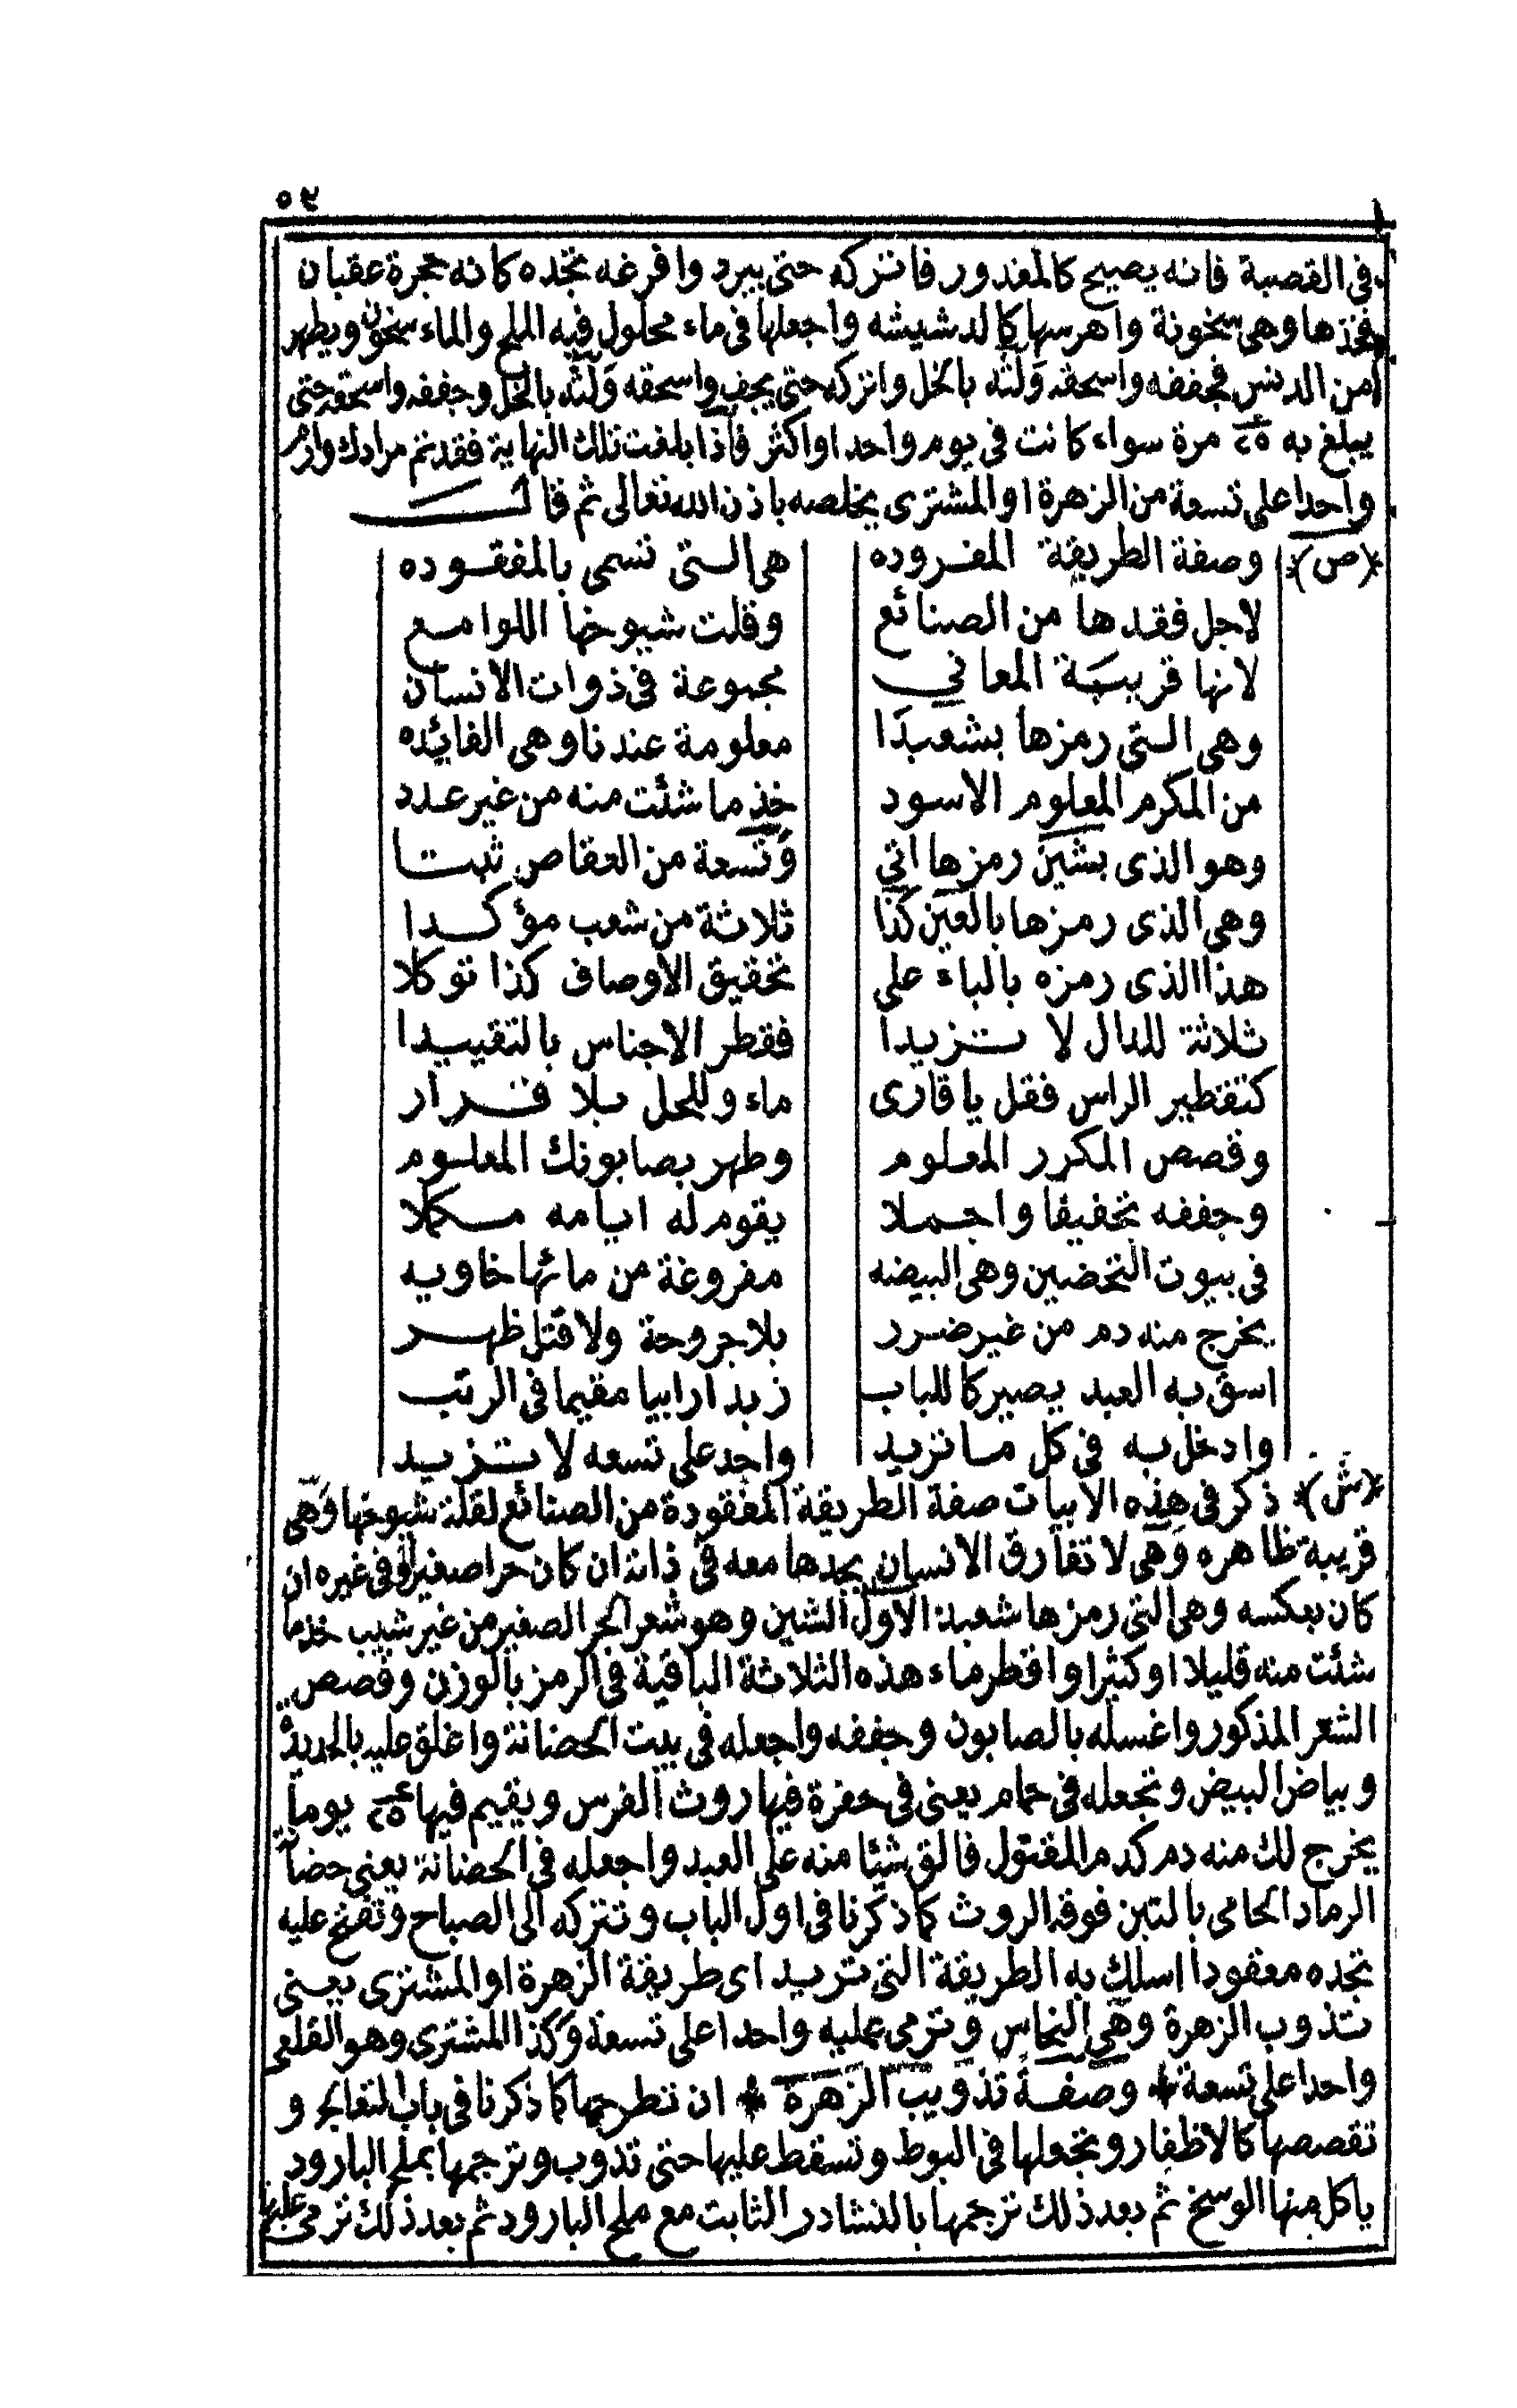 ٥٤
في القصبة فانه يصيح كالمغدور فاتركه حتى يبرد وافرغه تجده كانه حجرة عقبان
فخذها وهي سخونة واهرسها كالدشيشه واجعلها في ماء محلول فيه الملح والماء سخون ويطهر
من الدنس فجففه واسحقه ولته بالخل واتركه حتى يجف واسحقه ولته بالخل وجففه واسحقه حتى
يبلغ به ٢٥ مرة سواء كانت في يوم واحد او اكثر فاذا بلغت تلك النهاية فقد تم مرادك وارم
واحدا على تسعة من الزهرة او المشترى يخلصه باذن الله تعالى ثم قال
﴿ص﴾ وصفة الطريقة المفروده هي التي تسمى بالمفقوده
لاجل فقدها من الصنائع وقلت شيوخها اللوامع
لانها قريبة المعاني مجموعة في ذوات الانسان
وهي التي رمزها بشعبدا معلومة عندنا وهي الفائده
من المكرم المعلوم الاسود خذ ما شئت منه من غير عدد
وهو الذى بشين رمزها اتي وتسعة من العقاص ثبتا
وهي الذى رمزها بالعين كذا ثلاثة من شعب مؤكدا
هذا الذى رمزه بالباء على تحقيق الاوصاف كذا توكلا
ثلاثة للدال لا تزيدا فقطر الاجناس بالتقييدا
كتقطير الراس فقل يا قارى ماء وللحل بلا قرار
وقصص المكرر المعلوم وطهر بصابونك المعلوم
وجففه تجفيفا واجملا يقوم له ايامه مكملا
في بيوت التحضين وهي البيضه مفروغة من مائها خاويه
يخرج منه دم من غير ضرر بلا جروحة ولا قتل ظهر
اسق به العبد يصير كاللباب زبدا رابيا مقيما في الرتب
وادخل به في كل ما تزيد واحد على تسعه لا تزيد
﴿ش﴾ ذكر في هذه الابيات صفة الطريقة المفقودة من الصنائع لقلة شيوخها وهي
قريبة ظاهره وهي لا تفارق الانسان يجدها معه في ذاته ان كان حرا صغيرا وفي غيره ان
كان بعكسه وهي التي رمزها شعبد الاول الشين وهو شعر الحر الصغير من غير شيب خذ ما
شئت منه قليلا او كثيرا واقطر ماء هذه الثلاثة الباقية في الرمز بالوزن وقصص
الشعر المذكور واغسله بالصابون وجففه واجعله في بيت الحضانة واغلق عليه بالحديدة
وبياض البيض وتجعله في حمام يعنى في حفرة فيها روث الفرس ويقيم فيها ٢٥ يوما
يخرج لك منه دم كدم المقتول فالق شيئا منه على العبد واجعله في الحضانة يعنى حضانة
الرماد الحامى بالتبن فوقه الروث كما ذكرنا في اول الباب وتتركه الى الصباح وتفتح عليه
تجده معقودا اسلك به الطريقة التي تريد اى طريقة الزهرة او المشترى يعنى
تذوب الزهرة وهي النحاس وترمى عليه واحدا على تسعة وكذا المشترى وهو القلعى
واحدا على تسعة * وصفة تذويب الزهرة * ان تطرحها كما ذكرنا في باب التفالج و
تقصصها كالاظفار وتجعلها في البوط وتسقط عليها حتى تذوب وترجمها بملح البارود
ياكل منها الوسخ ثم بعد ذلك ترجمها بالنشادر الثابت مع ملح البارود ثم بعد ذلك ترمى عليها